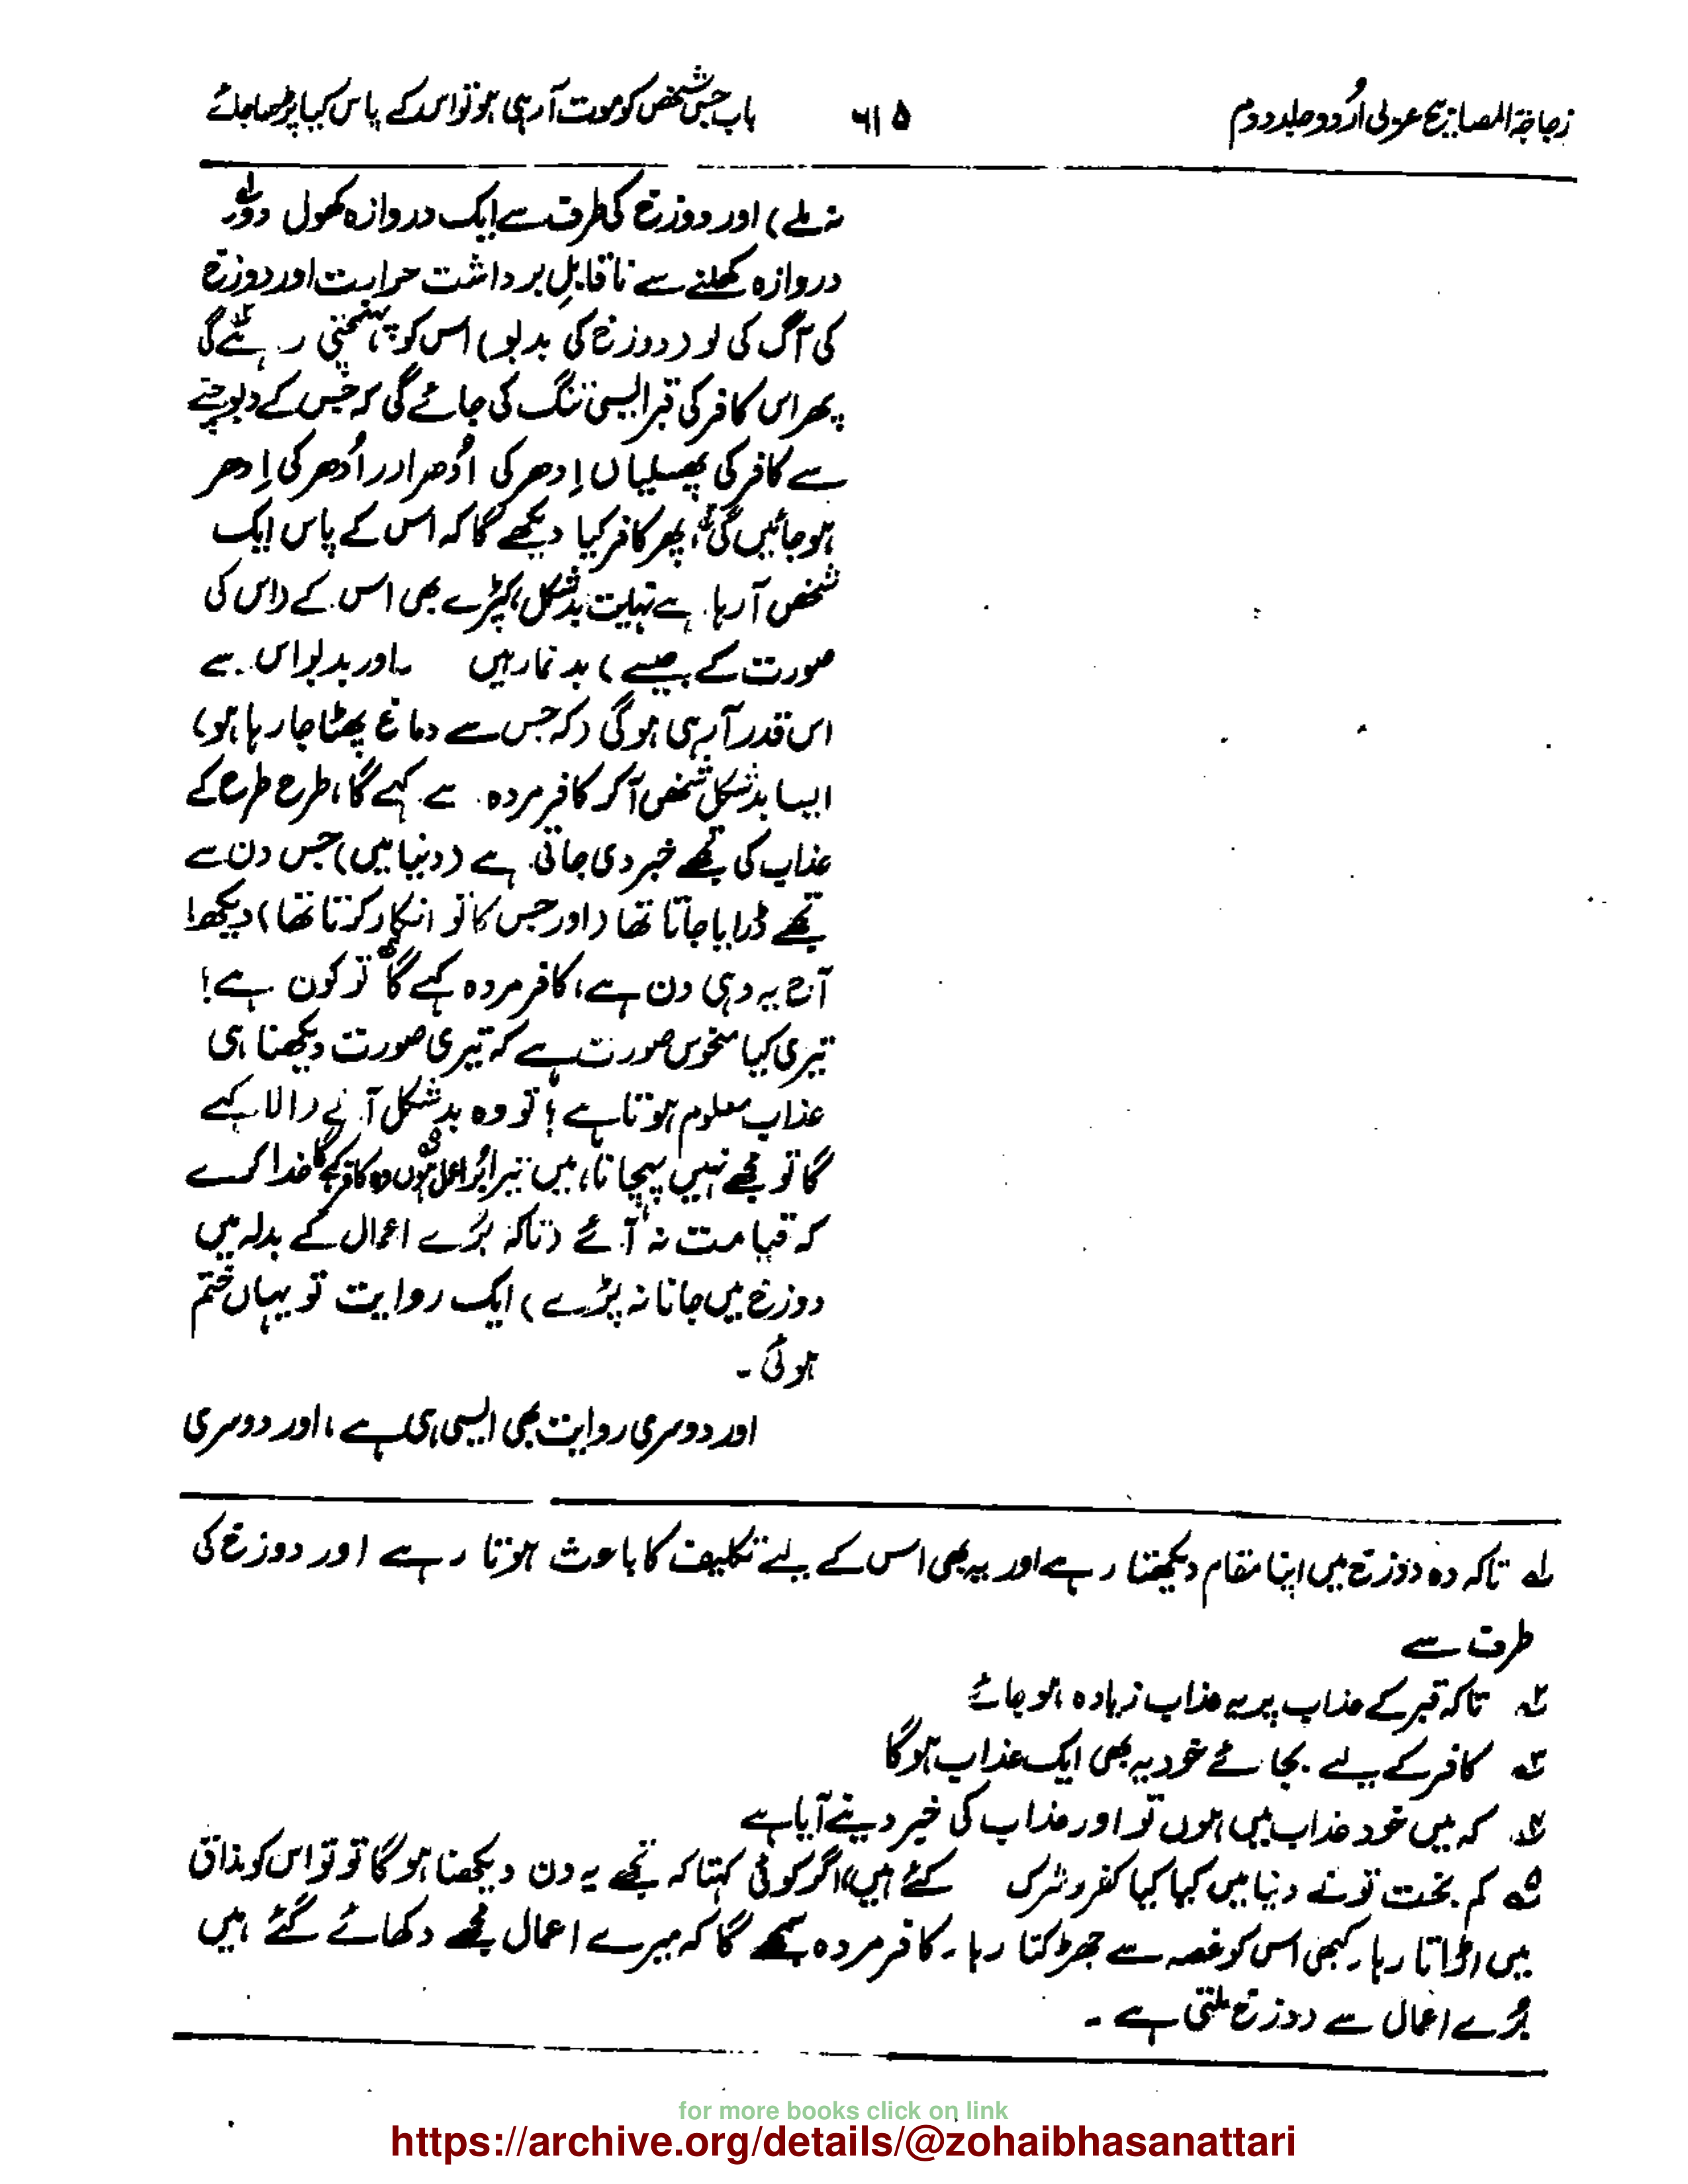 زجاجۃ المصابیح عربی اُردو جلد دوم
۶۱۵
باب جس شخص کو موت آرہی ہو تو اس کے پاس کیا پڑھا جائے
نہ ملے) اور دوزخ کی طرف سے ایک دروازہ کھول دو
دروازہ کھلنے سے ناقابلِ برداشت حرارت اور دوزخ
کی آگ کی لو (دوزخ کی بدبو) اس کو پہنچتی رہے گی
پھر اس کافر کی قبر ایسی تنگ کی جائے گی کہ جس کے دبوچنے
سے کافر کی پھسلیاں اِدھر کی اُدھر اور اُدھر کی اِدھر
ہو جائیں گی، پھر کافر کیا دیکھے گا کہ اس کے پاس ایک
شخص آرہا ہے نہایت بدشکل، کپڑے بھی اس کے (اس کی
صورت کے جیسے) بدنما رہیں اور بدبو اس سے
اس قدر آرہی ہوگی (کہ جس سے دماغ پھٹا جا رہا ہو)
ایسا بدشکل شخص آکر کافر مردہ سے کہے گا، طرح طرح کے
عذاب کی تجھے خبر دی جاتی ہے (دنیا میں) جس دن سے
تجھے ڈرایا جاتا تھا (اور جس کا تو انکار کرتا تھا) دیکھ!
آج یہ وہی دن ہے، کافر مردہ کہے گا تو کون ہے!
تیری کیا منحوس صورت ہے کہ تیری صورت دیکھنا ہی
عذاب معلوم ہوتا ہے؟ تو وہ بدشکل آنے والا کہے
گا تو مجھے نہیں پہچانا، میں تیرا بُرا عمل ہوں وہ کافر کہے گا خدا کرے
کہ قیامت نہ آئے (تاکہ بُرے اعمال کے بدلہ میں
دوزخ میں جانا نہ پڑے) ایک روایت تو یہاں ختم
ہوئی۔
اور دوسری روایت بھی ایسی ہی ہے، اور دوسری
لہ تاکہ وہ دوزخ میں اپنا مقام دیکھتا رہے اور یہ بھی اس کے لیے تکلیف کا باعث ہوتا رہے اور دوزخ کی
طرف سے
۲ہ تاکہ قبر کے عذاب پر یہ عذاب زیادہ ہو جائے
۳ہ کافر کے لیے بجائے خود یہ بھی ایک عذاب ہوگا
۴ہ کہ میں خود عذاب میں ہوں تو اور عذاب کی خبر دینے آیا ہے
۵ہ کم بخت تونے دنیا میں کیا کیا کفر و شرک کئے ہیں) اگر کوئی کہتا کہ تجھے یہ دن دیکھنا ہوگا تو تو اس کو مذاق
میں اڑاتا رہا۔ کبھی اس کو غصہ سے جھڑکتا رہا۔ کافر مردہ سمجھے گا کہ میرے اعمال مجھے دکھائے گئے ہیں
بُرے اعمال سے دوزخ ملتی ہے۔
for more books click on link
https://archive.org/details/@zohaibhasanattari